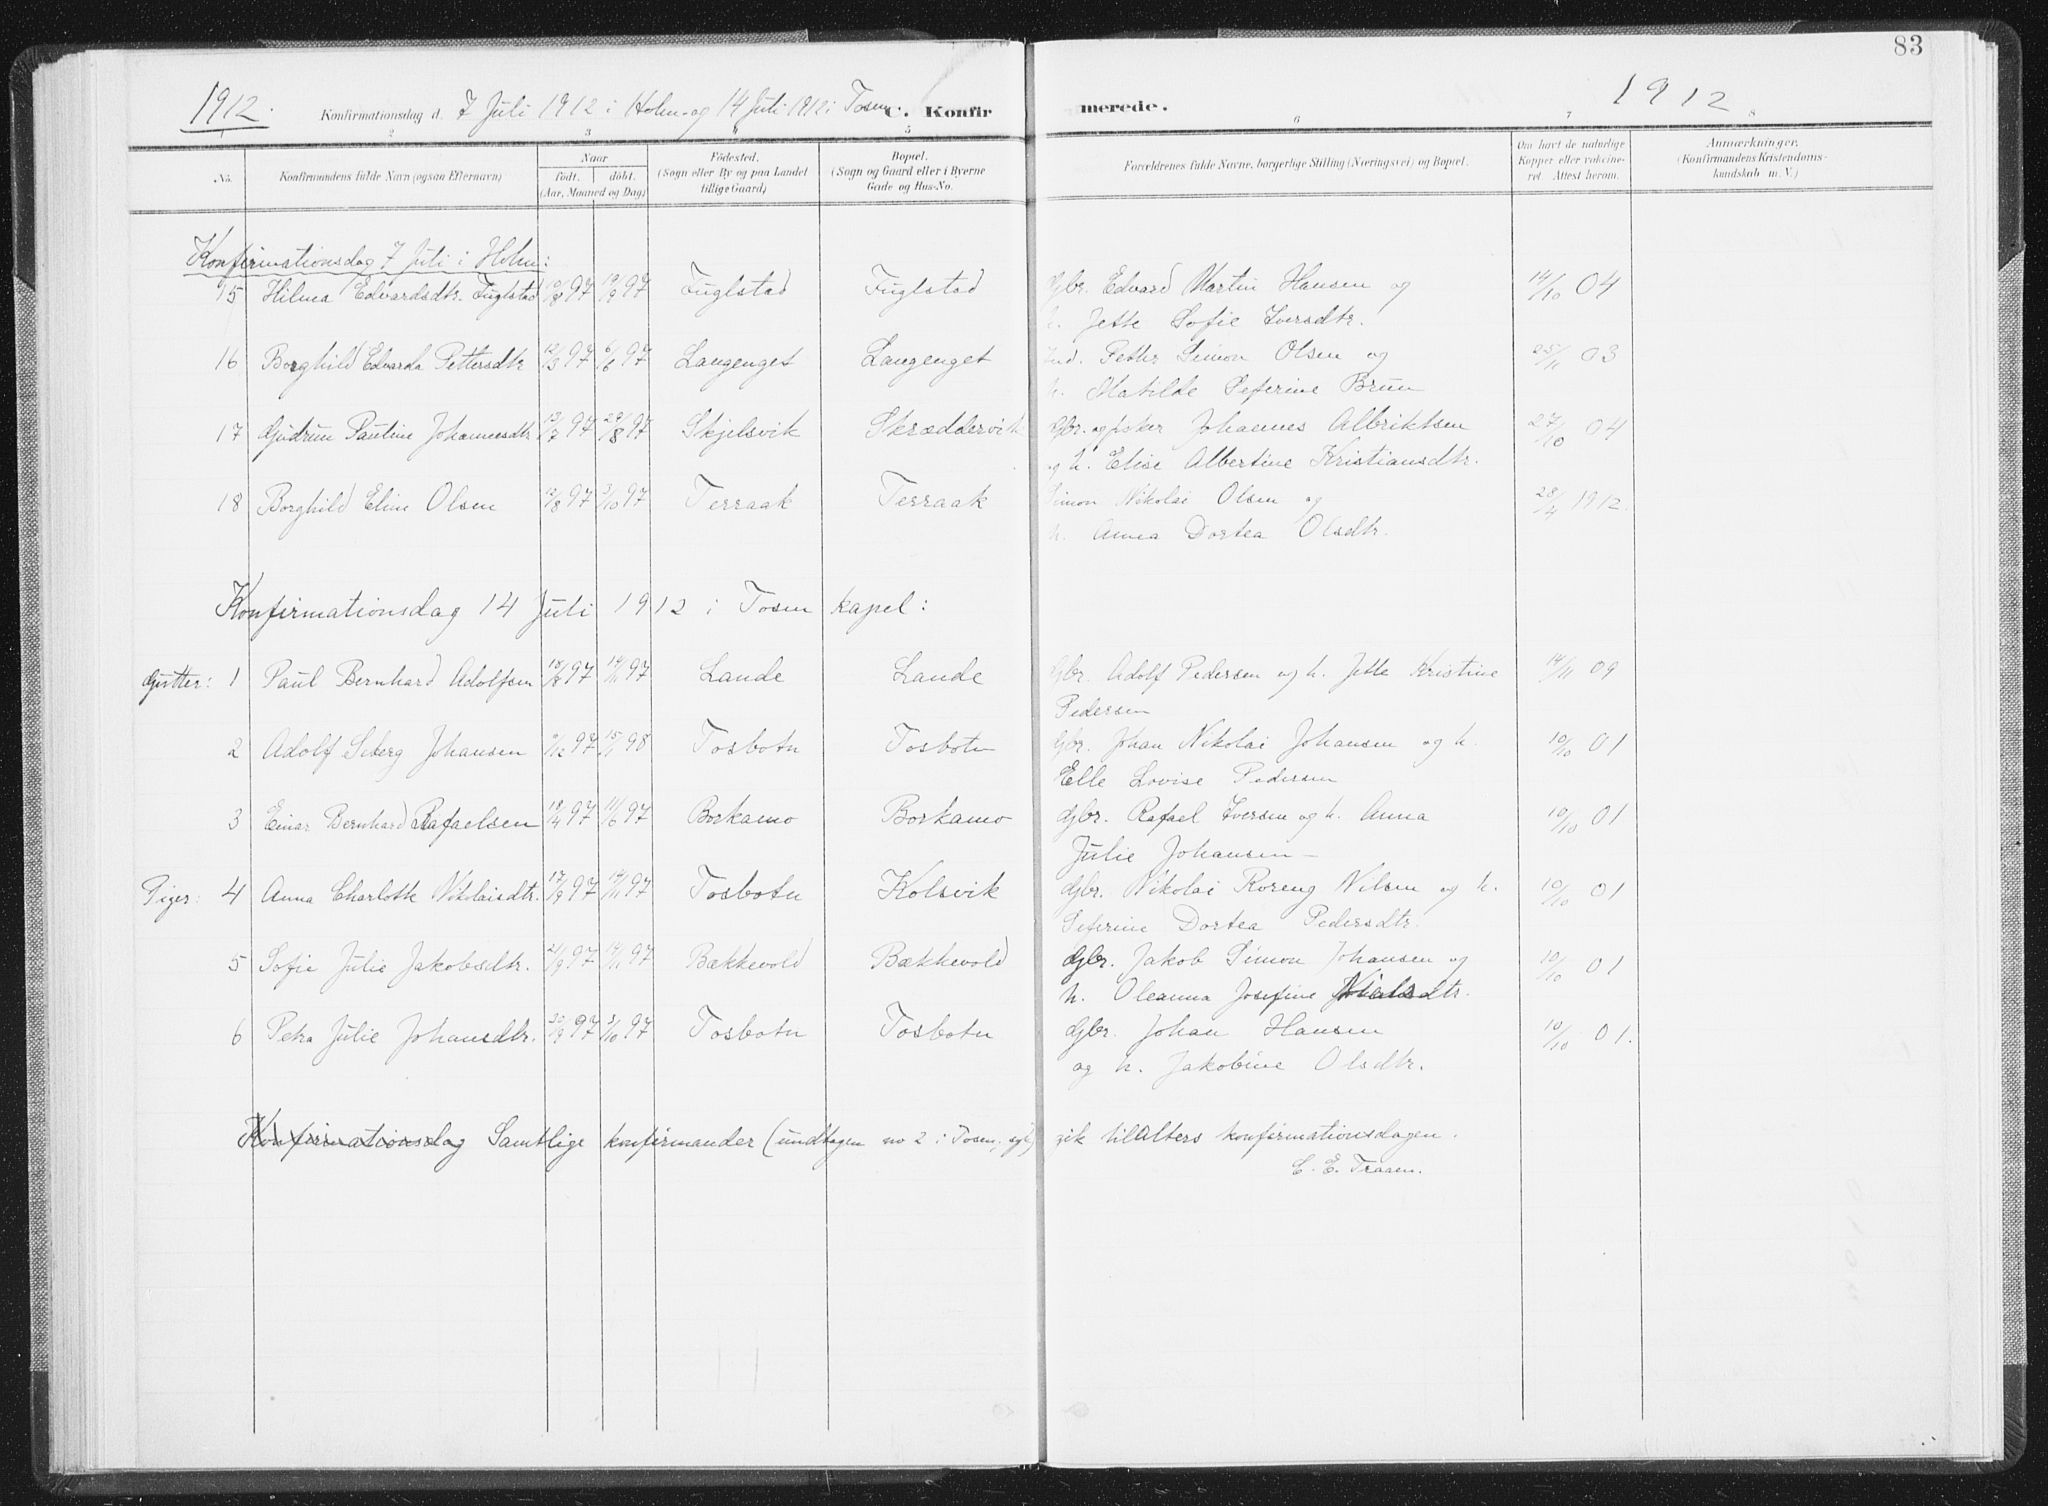 83
1912. Konfirmationsdag d. 7 Juli 1912 i Holm og 14 Juli 1912 i Tosen C. Konfirmerede. 1912
1 2 3 4 5 6 7 8
No. Konfirmandens fulde Navn (ogsaa Efternavn) Naar født. døbt. (Aar, Maaned og Dag) Fødested. (Sogn eller By og paa Landet tillige Gaard) Bopæl. (Sogn og Gaard eller i Byerne Gade og Hus-No. Forældrenes fulde Navne, borgerlige Stilling (Næringsvei) og Bopæl. Om havt de naturlige Kopper eller vaksineret. Attest herom. Anmærkninger. (Konfirmandens Kristendomskundskab m. V.)
Konfirmationsdag 7 Juli i Holm:
15 Hilma Edvardsdtr. Fuglstad 10/8 97 19/9 97 Fuglstad Fuglstad Gbr. Edvard Martin Hansen og 14/10 04
h. Jette Sofie Iversdtr.
16 Borghild Edvarda Pettersdtr 12/3 97 6/6 97 Langenget Langenget Ind. Petter Simon Olsen og 25/11 03
h. Matilde Seferine Brun
17 Gudrun Pauline Johannesdtr 13/7 97 29/8 97 Skjelsvik Skræddervik Gbr. og fisker Johannes Albriktsen 27/10 04
og h. Elise Albertine Kristiansdtr.
18 Borghild Eline Olsen 12/8 97 3/10 97 Terraak Terraak Simon Nikolai Olsen og 28/4 1912.
h. Anna Dortea Olsdtr.
Konfirmationsdag 14 Juli 1912 i Tosen kapel:
Gutter: 1 Paul Bernhard Adolfsen 18/8 97 14/11 97 Lande Lande Gbr. Adolf Pedersen og h. Jette Kristine 14/11 09
Pedersen
2 Adolf Seberg Johansen 9/12 97 15/1 98 Tosbotn Tosbotn Gbr. Johan Nikolai Johansen og h. 10/10 01
Elle Lovise Pedersen
3 Einar Bernhard Rafaelsen 18/4 97 11/6 97 Borkamo Borkamo Gbr. Rafael Iversen og h. Anna 10/10 01
Julie Johansen
Piger: 4 Anna Charlotte Nikolaisdtr. 17/9 97 14/11 97 Tosbotn Kolsvik Gbr. Nikolai Roreng Nilsen og h. 10/10 01
Seferine Dortea Pedersdtr.
5 Sofie Julie Jakobsdtr. 21/9 97 14/11 97 Bækkevold Bækkevold Gbr. Jakob Simon Johansen og 10/10 01
h. Oleanna Josefine
6 Petra Julie Johansdtr. 30/9 97 3/10 97 Tosbotn Tosbotn Gbr. Johan Hansen 10/10 01.
og h. Jakobine Olsdtr.
Konfirmationsdag Samtlige konfirmander (undtagen no 2 i Tosen, syk) gik til Alters konfirmationsdagen.
C. E. Traaen.